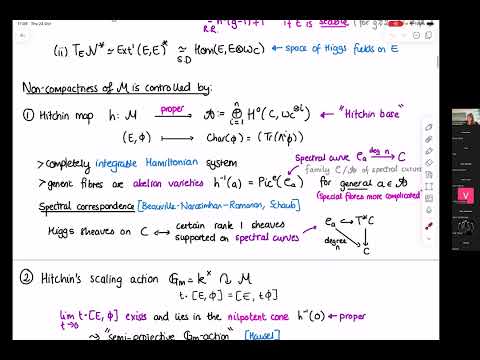 11:09 Thu 24 Oct
R.R. n²(g-1)+1 if E is stable (for g≥2
(ii) T_E N* ≃ Ext¹(E,E)* ≃ Hom(E, E⊗ω_C) ← space of Higgs fields on E
S.D
Non-compactness of M is controlled by:
① Hitchin map h: M —proper→ A := ⊕_{i=1}^{n} H⁰(C, ω_C^{⊗i}) ← "Hitchin base"
(E, Φ) ⟼ Char(Φ) = (Tr(Λⁱφ))
> completely integrable Hamiltonian system
spectral curve C_a —deg n→ C
family C/A of spectral curves
> generic fibres are abelian varieties h⁻¹(a) = Pic^e(C_a) for general a ∈ A
(Special fibres more complicated)
Spectral correspondence [Beauville-Narasimhan-Ramanan, Schaub]
Higgs sheaves on C ↔ certain rank 1 sheaves supported on spectral curves
C_a ↪ T*C
degree n
C
② Hitchin's scaling action G_m = k^× ↷ M
t·[E,Φ] = [E, tΦ]
lim_{t→0} t·[E,Φ] exists and lies in the nilpotent cone h⁻¹(0) ← proper
⇝ "semi-projective G_m-action" [Hausel]
V